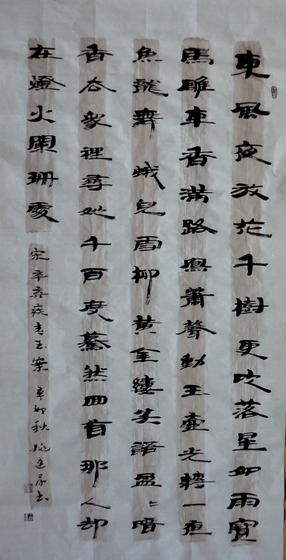 東風夜放花千樹更吹落星如雨寶
馬雕車香滿路鳳簫聲動玉壺光轉一夜
魚龍舞蛾兒雪柳黃金縷笑語盈〻暗
香去眾裡尋她千百度驀然回首那人卻
在燈火闌珊處
宋辛弃疾青玉案 辛卯秋 书